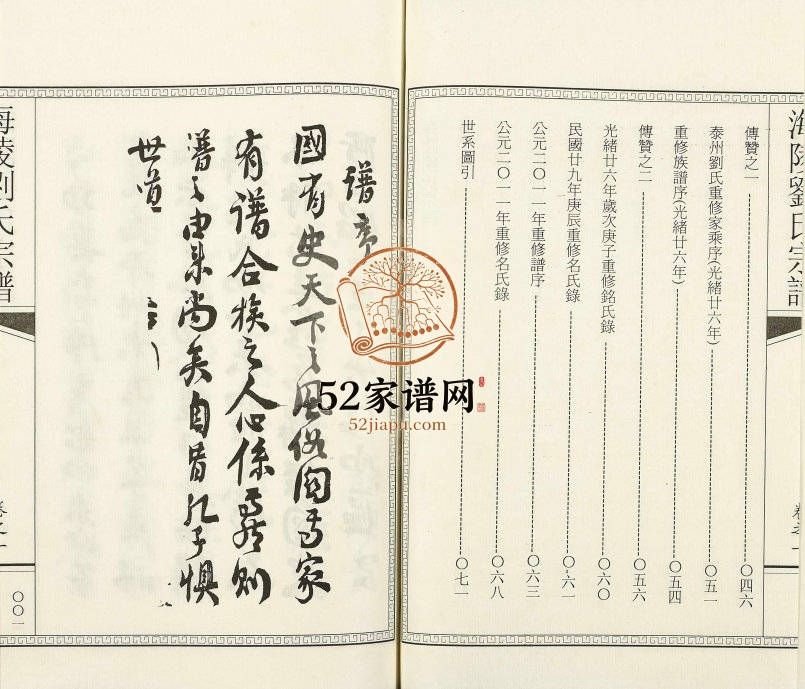 海陵劉氏宗譜
卷之一
傳贊之一 〇四六
泰州劉氏重修家乘序(光緒廿六年) 〇五一
重修族譜序(光緒廿六年) 〇五四
傳贊之二 〇五六
光緒廿六年歲次庚子重修銘氏錄 〇六〇
民國廿九年庚辰重修名氏錄 〇六一
公元二〇一一年重修譜序 〇六三
公元二〇一一年重修名氏錄 〇六八
世系圖引 〇七一
譜序
國有史天下之風俗因焉家
有譜合族之人心係焉然則
譜之由來尚矣自昔孔子懼
世道
海陵劉氏宗譜
卷之一
〇〇一
52家谱网
52jiapu.com